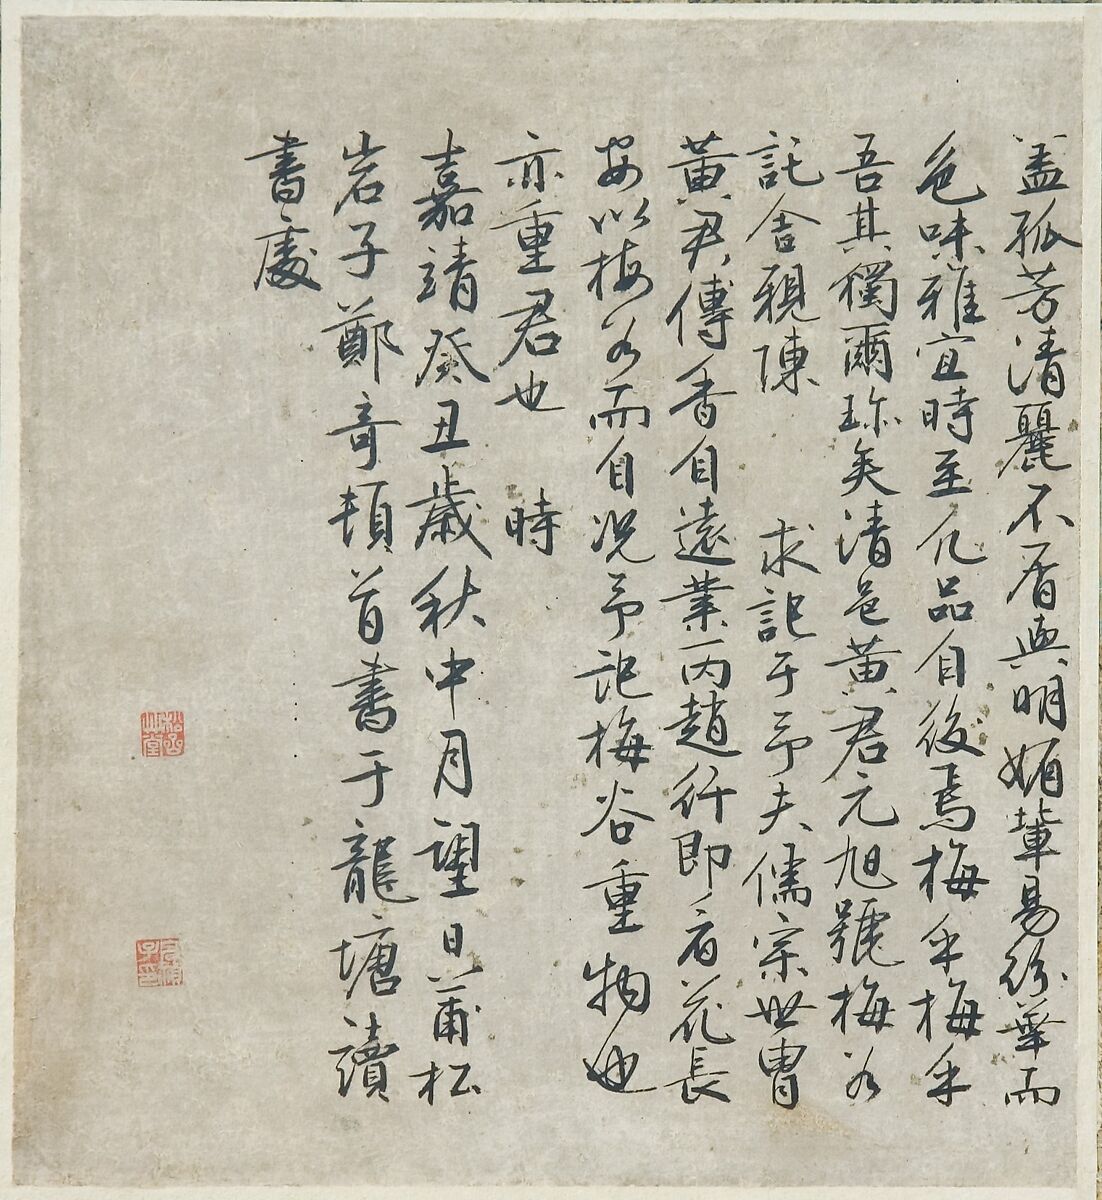 盖孤芳清麗不屑與明媚輩易紛華而
色味雅宜時至凡品自後焉梅乎梅乎
吾其獨爾珍矣清邑黃君元旭號梅谷
託舍親陳 求記于予夫儒宗世胄
黃君傳香自遠業丙趙行即看花長
安以梅谷而自况予記梅谷重物也
亦重君也 時
嘉靖癸丑歲秋中月望日莆松
岩子鄭奇頓首書于龍塘讀
書處